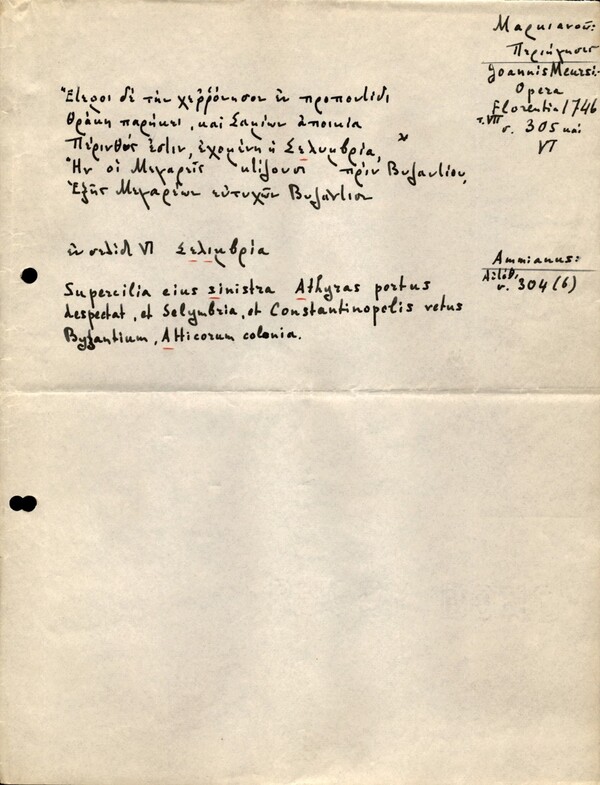 Μαρκιανοῦ:
Περιήγησις
Joannis Meursi-
Opera
Florentia 1746
τ. VII σ. 305 καὶ
VI
Ἕτεροι δὲ τὴν χερρόνησον ἐν προποντίδι
Θράκη παρήκει, καὶ Σαμίων ἀποικία
Πέρινθός ἐστιν, ἐχομένη ἡ Σελυμβρία,
Ἣν οἱ Μεγαρεῖς κτίζουσι πρὶν Βυζαντίου,
Ἑξῆς Μεγαρέων εὐτυχῶν Βυζάντιον
ἐν σελίδι VI Σελιμβρία
Ammianus:
σ. 304 (6)
Supercilia eius sinistra Athyras portus
despectat, et Selymbria, et Constantinopolis vetus
Byzantium, Atticorum colonia.